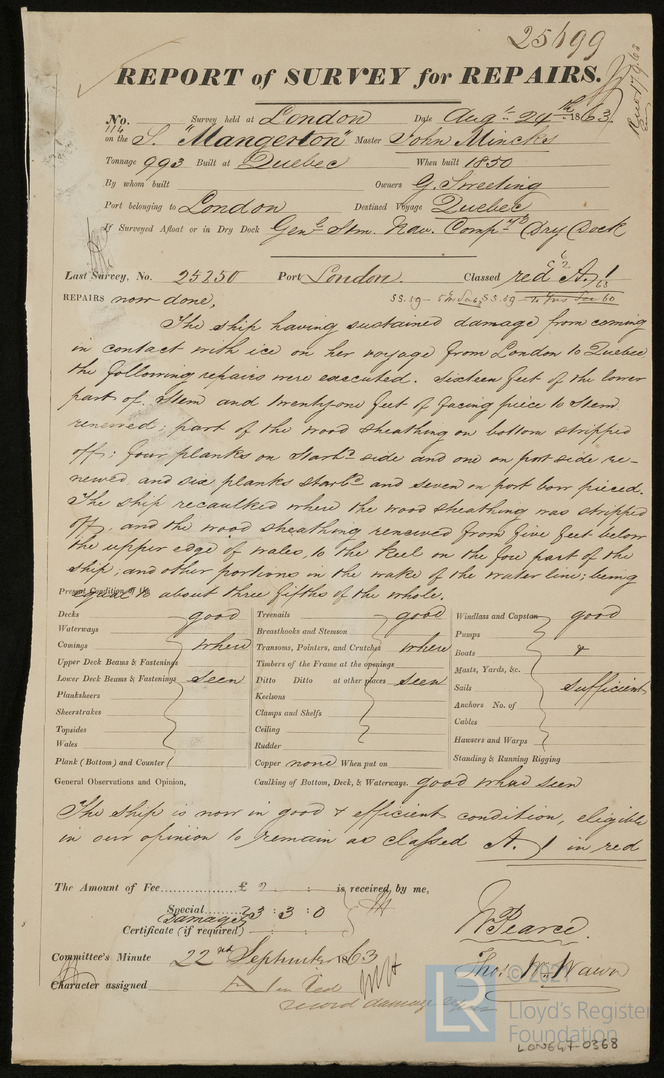 25699
REPORT of SURVEY for REPAIRS.
No. 114 Survey held at London Date Augt 24th 1863.
on the S. "Mangerton" Master John Mincks
Tonnage 993 Built at Quebec When built 1850
By whom built Owners G. Sweeting
Port belonging to London Destined Voyage Quebec
If Surveyed Afloat or in Dry Dock Genl Stm. Nav. Compys Dry Dock
Last Survey, No. 25250 Port London. Classed red A. 1
REPAIRS now done,
The ship having sustained damage from coming
in contact with ice on her voyage from London to Quebec
the following repairs were executed. Sixteen feet of the lower
part of Stem and twenty-one feet of facing piece to Stem
renewed; part of the wood sheathing on bottom stripped
off; four planks on Starbd side and one on port side re-
newed and six planks starbd and seven on port bow pieced.
The ship recaulked where the wood sheathing was stripped
off, and the wood sheathing renewed from five feet below
the upper edge of wales, to the keel on the fore part of the
ship; and other portions in the wake of the water line; being
equal to about three fifths of the whole.
Present Condition of the
Decks good
Waterways
Comings where
Upper Deck Beams & Fastenings
Lower Deck Beams & Fastenings seen
Planksheers
Sheerstrakes
Topsides
Wales
Plank (Bottom) and Counter
Treenails good
Breasthooks and Stemson
Transoms, Pointers, and Crutches where
Timbers of the Frame at the openings
Ditto Ditto at other places seen
Keelsons
Clamps and Shelfs
Ceiling
Rudder
Copper none When put on
Windlass and Capston good
Pumps
Boats &
Masts, Yards, &c.
Sails sufficient
Anchors No. of
Cables
Hawsers and Warps
Standing & Running Rigging
General Observations and Opinion,
Caulking of Bottom, Deck, & Waterways. good where seen
The Ship is now in good & efficient condition, eligible
in our opinion to remain as classed A. 1 in red
The Amount of Fee £ 2 : : is received by me,
Special
Damages 3 : 3 : 0
Certificate (if required)
W Pearce.
Committee's Minute 22nd September 1863
Character assigned A 1 in red
record damage repairs
© 2021
LR Lloyd's Register
Foundation
LON647-0368